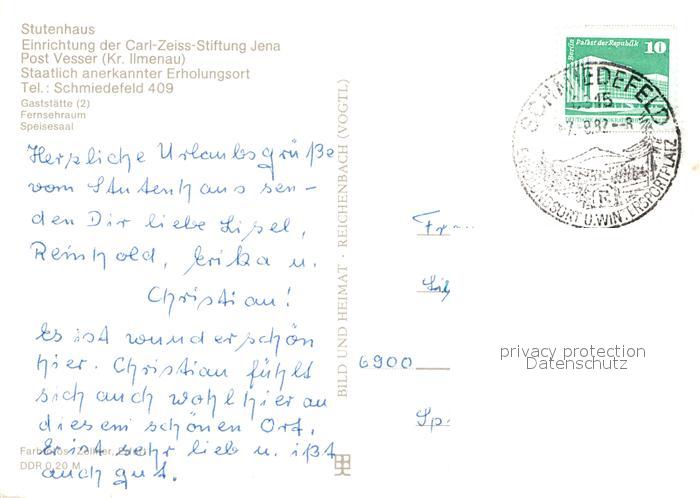 Stutenhaus
Einrichtung der Carl-Zeiss-Stiftung Jena
Post Vesser (Kr. Ilmenau)
Staatlich anerkannter Erholungsort
Tel.: Schmiedefeld 409
Gaststätte (2)
Fernsehraum
Speisesaal
Herzliche Urlaubsgrüße
vom Stutenhaus sen-
den Dir liebe Lisel,
Reinhold, Erika u.
Christian!
Es ist wunderschön
hier. Christian fühlt
sich auch wohl hier an
diesem schönen Ort.
Er ist sehr lieb u. ißt
auch gut.
DDR 0,20 M
BILD UND HEIMAT · REICHENBACH (VOGTL)
Palast der Republik
10
SCHMIEDEFELD
U. WINTERSPORTPLATZ
6900
privacy protection
Datenschutz